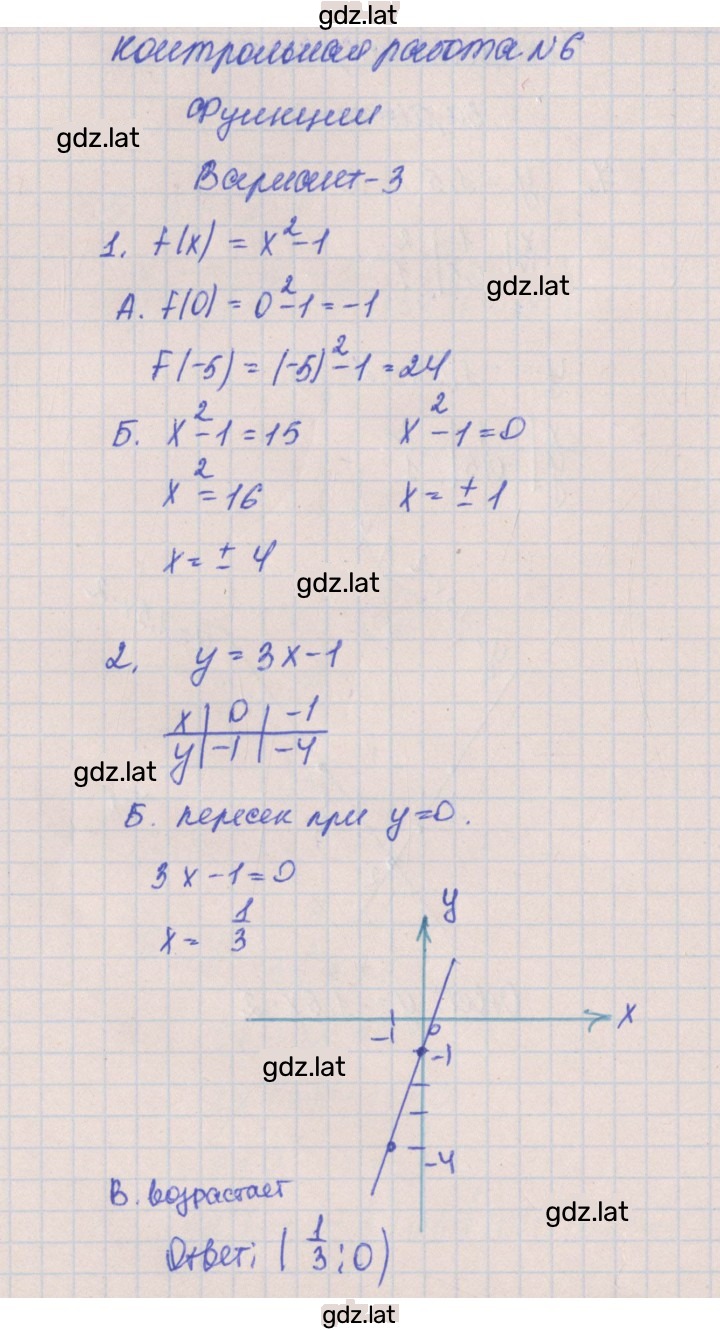 gdz.lat
Контрольная работа №6
Функции
gdz.lat
Вариант-3
1. f(x) = x²-1
gdz.lat
А. f(0) = 0²-1 = -1
F(-5) = (-5)²-1 = 24
Б. x²-1 = 15 x²-1 = 0
x² = 16 x = ± 1
x = ± 4
gdz.lat
2. y = 3x-1
x | 0 | -1
y | -1 | -4
gdz.lat
Б. пересек при y=0.
3x-1=0
x = 1/3
y
x
-1 0
-1
gdz.lat
-4
В. возрастает
gdz.lat
Ответ: (1/3; 0)
gdz.lat